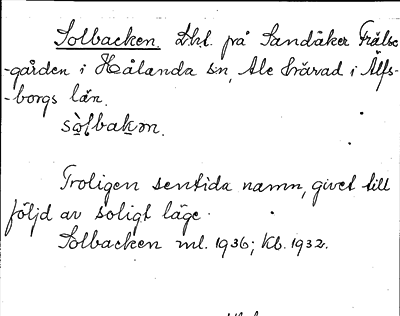 Solbacken. Lht. på Sandåker Frälse
-gården i Hålanda sn, Ale härad i Älfs-
-borgs län.
sòlbakɷn.
Troligen sentida namn, givet till
följd av soligt läge.
Solbacken ml. 1936; Kb. 1932.